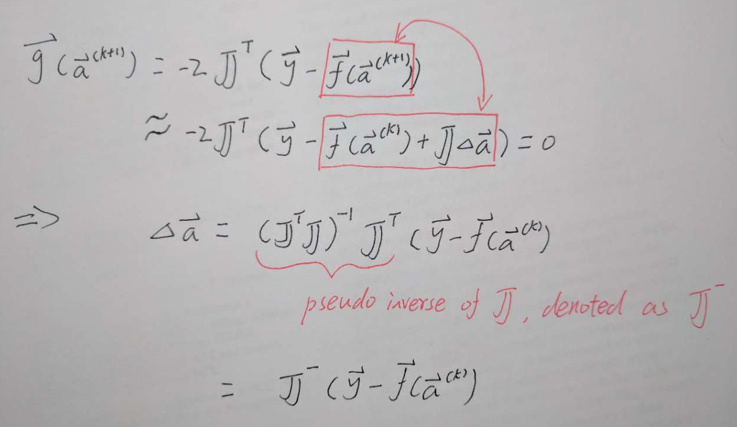 g⃗(a⃗^(k+1)) = -2 𝕁^T (y⃗ - f⃗(a⃗^(k+1)))
≈ -2 𝕁^T (y⃗ - f⃗(a⃗^(k)) + 𝕁Δa⃗) = 0
=> Δa⃗ = (𝕁^T 𝕁)^-1 𝕁^T (y⃗ - f⃗(a⃗^(k))
pseudo inverse of 𝕁, denoted as 𝕁^-
= 𝕁^- (y⃗ - f⃗(a⃗^(k))